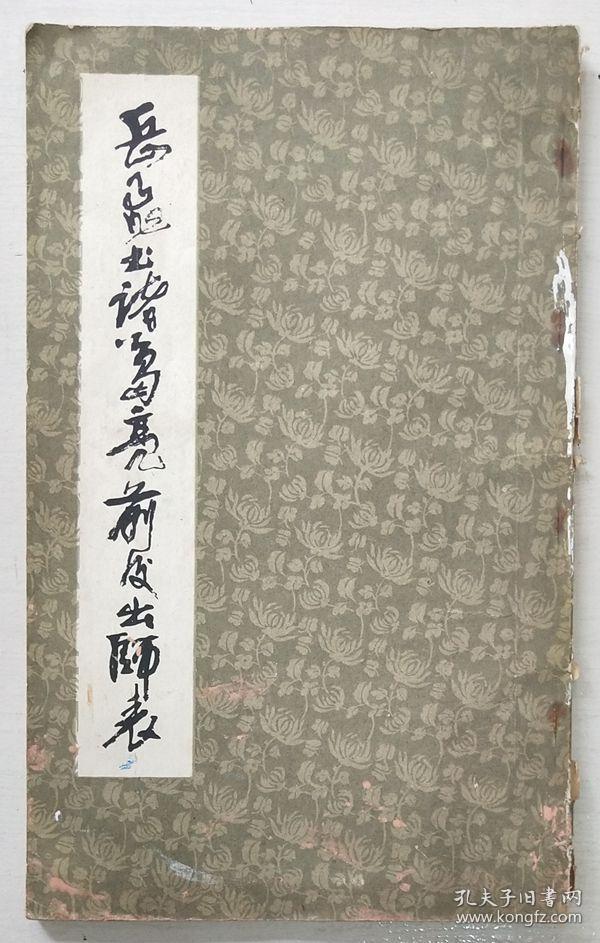 岳飞书诸葛亮前后出师表
孔夫子旧書网
www.kongfz.com